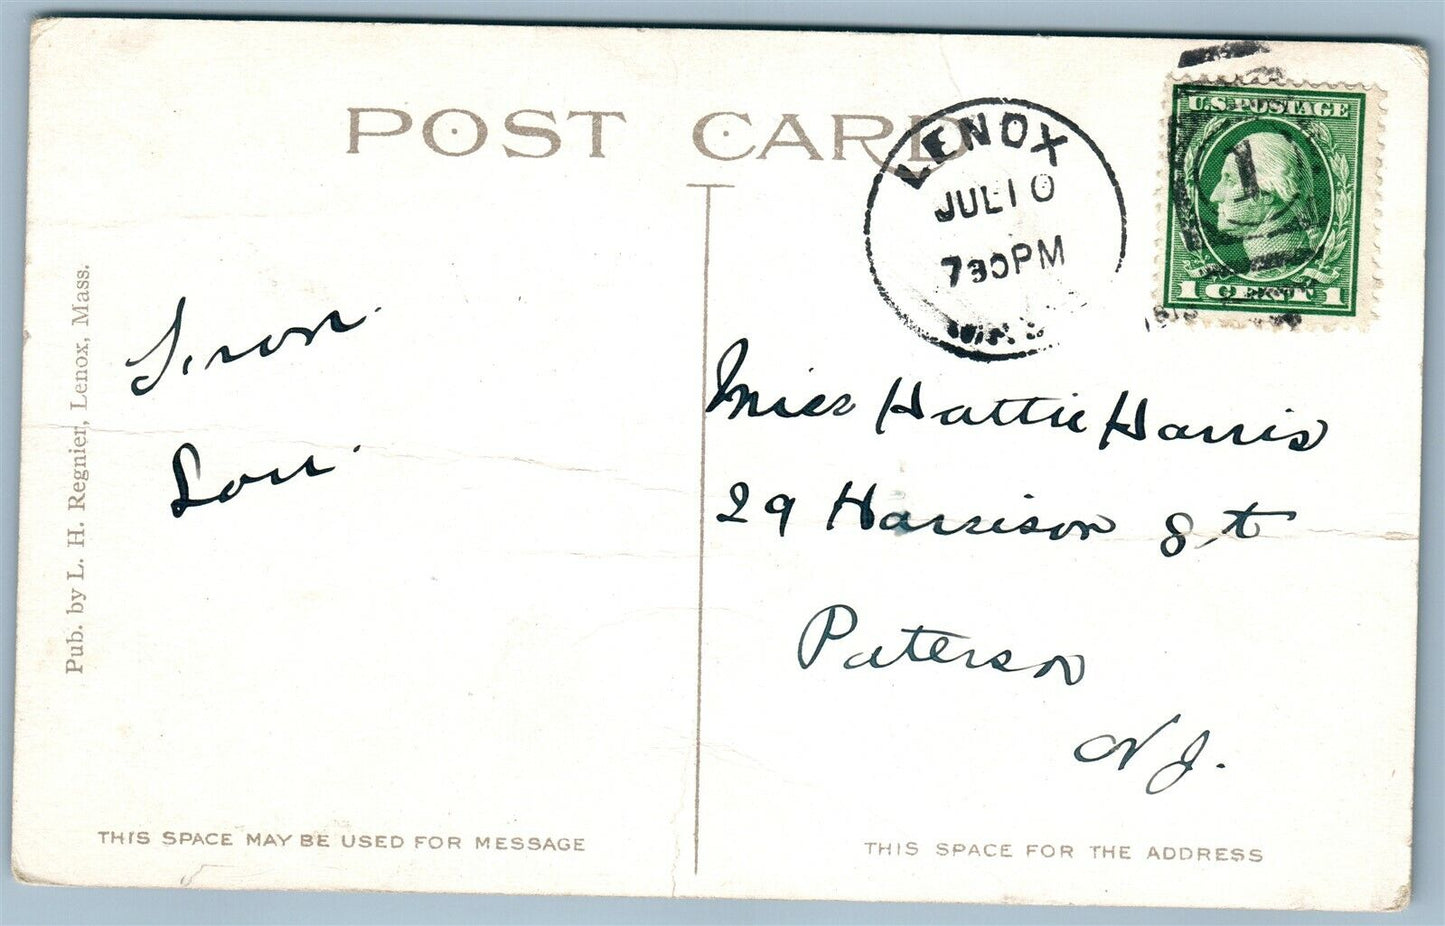 POST CARD
LENOX
JUL 10
730PM
MASS.
U.S. POSTAGE
1 CENT 1
1
Pub. by L. H. Regnier, Lenox, Mass.
From
Lou.
Miss Hattie Harris
29 Harrison St
Paterson
N.J.
THIS SPACE MAY BE USED FOR MESSAGE
THIS SPACE FOR THE ADDRESS